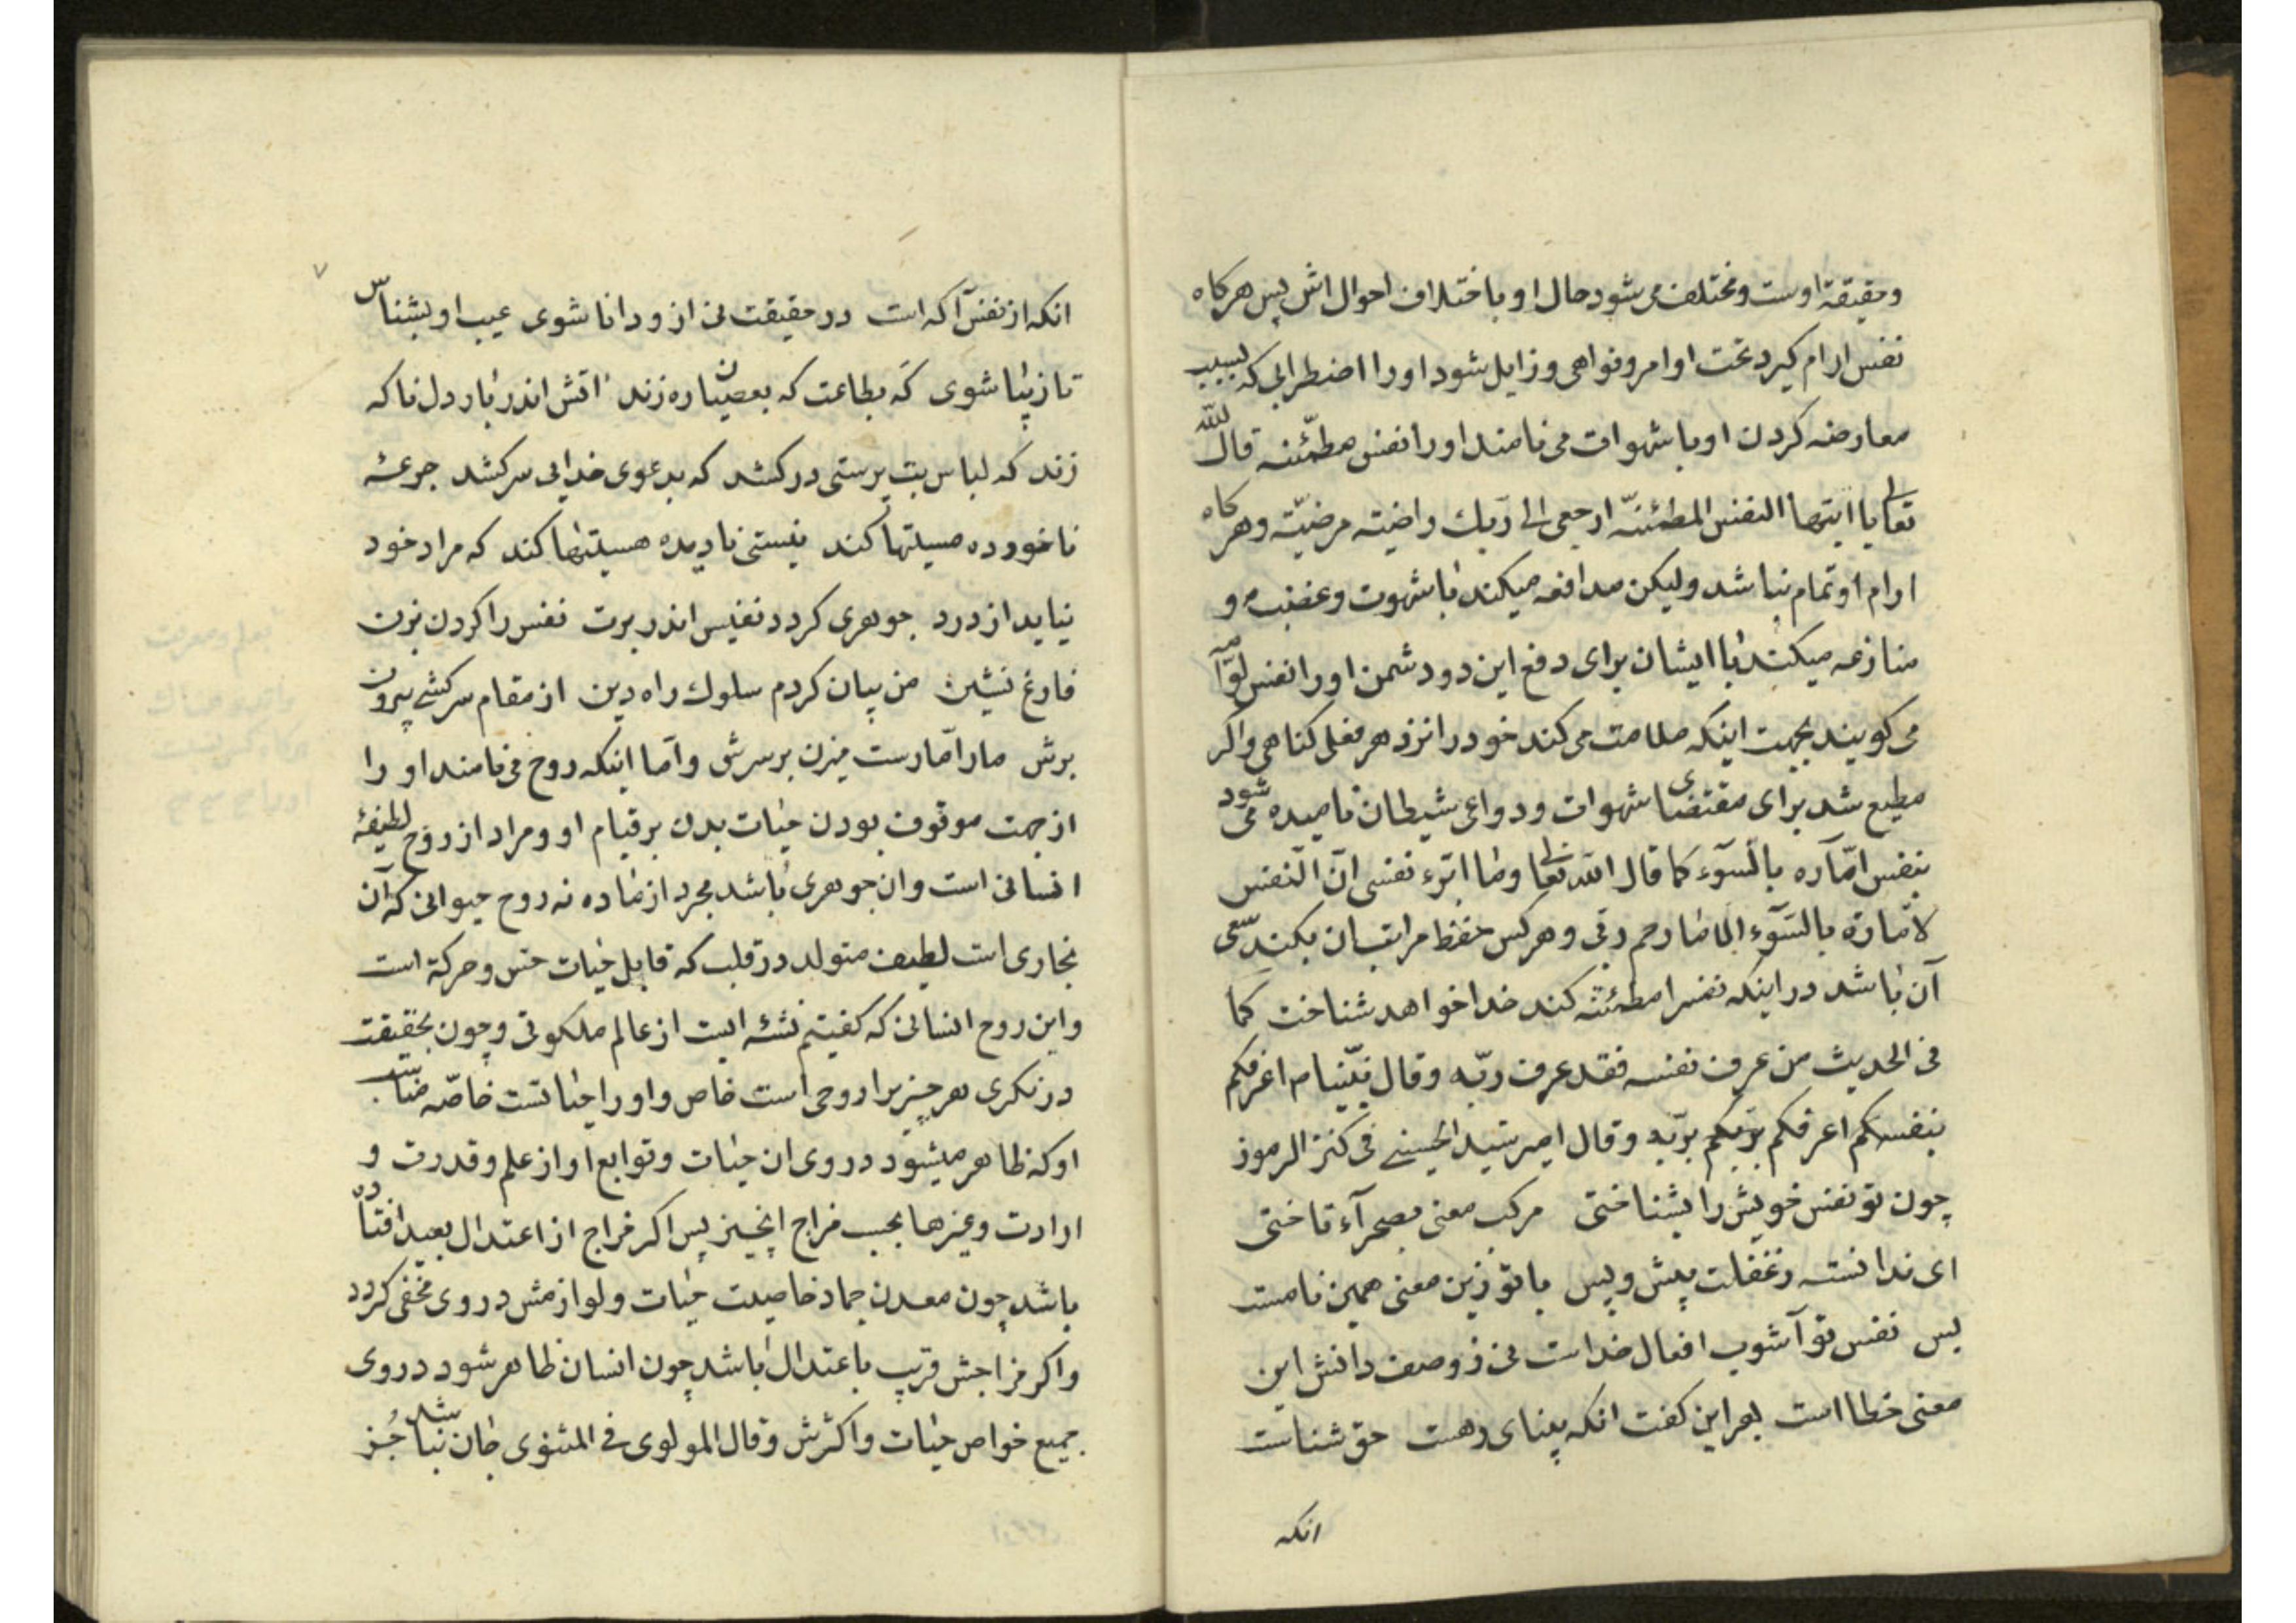 وحقیقة اوست ومختلف می شود حال او باختلاف احوال اش پس هرکاه
نفس ارام کیرد تحت اوامر ونواهی وزایل شود اورا اضطرابی که بسبب
معارضه کردن او با شهوات می نامند اورا نفس مطمّئنه قال الله
تعالی یا ایتها النفس المطمئنّه ارجعی الی ربّك راضیّه مرضیّة وهرکاه
ارام او تمام نباشد ولیکن مدافعه میکند با شهوت وغضب و
منازعه میکند با ایشان برای دفع این دو دشمن اورا نفس لوّامه
می کویند بجهت اینکه ملامت می کند خود را نزد هر فعل کناهی واکر
مطیع شد برای مقتضای شهوات ودواعی شیطان نامیده می شود
بنفس امّاره بالسّوء کما قال الله تعالی وما ابرّء نفسی انّ النّفس
لامّارة بالسّوء الّا ما رحم ربّی وهر کس حفظ مراتب ان بکند سعی
آن باشد در اینکه نفس را مطمئنّه کند خدا خواهد شناخت کما
فی الحدیث من عرف نفسه فقد عرف ربّه وقال نبیّنا م اعرفکم
بنفسکم اعرفکم بربّکم بربّه وقال امیر سیّد الحسینی فی کنز الرموز
چون تو نفس خویش را بشناختی مرکب معنی بصحرآء تاختی
ای ندانسته زغفلت پیش وپس با تو زین معنی همین نامست
بس نفس تو آشوب افعال خداست نی ز وصف دانش این
معنی خطا است بهر این کفت انکه بینای رهست حق شناست
انکه
۷
انکه از نفس آکه است در حقیقت نی ازو دانا شوی عیب او بشناس
تا زیبا شوی که بطاعت که بعصیان ره زند اتش اندر بار دل ناکه
زند که لباس بت پرستی درکشد که بدعوی خدایی سرکشد جرعهٔ
ناخورده مسیتها کند نیستی نادیده هسیتها کند که مراد خود
نیابد از درد جوهری کردد نفیس اندر برت نفس را کردن بزن
فارغ نشین من بیان کردم سلوك راه دین از مقام سرکشی بیرون
برش مار امّارست میزن بر سرش وامّا اینکه روح می نامند او را
از جهت موقوف بودن حیات بدن بر قیام او ومراد از روح لطیفهٔ
انسانی است وان جوهری باشد مجرد از ماده نه روح حیوانی که آن
بخاری است لطیف متولد در قلب که قابل حیات حس وحرکة است
واین روح انسانی که کفیتم نشئه ایست از عالم ملکوتی وچون بحقیقت
در نکری هر چیز برا روحی است خاص واورا حیاتست خاصّه مناسب
او که ظاهر میشود در وی ان حیات وتوابع او از علم وقدرت و
ارادت وغیرها بحسب مزاج انچیز پس اکر مزاج از اعتدال بعید افتاده
باشد چون معدن جماد خاصیت حیات ولوازمش در وی مخفی کردد
واکر مزاجش قریب باعتدال باشد چون انسان ظاهر شود در وی
جمیع خواص حیات واکثرش وقال المولوی فی المثنوی جان نباشد جز